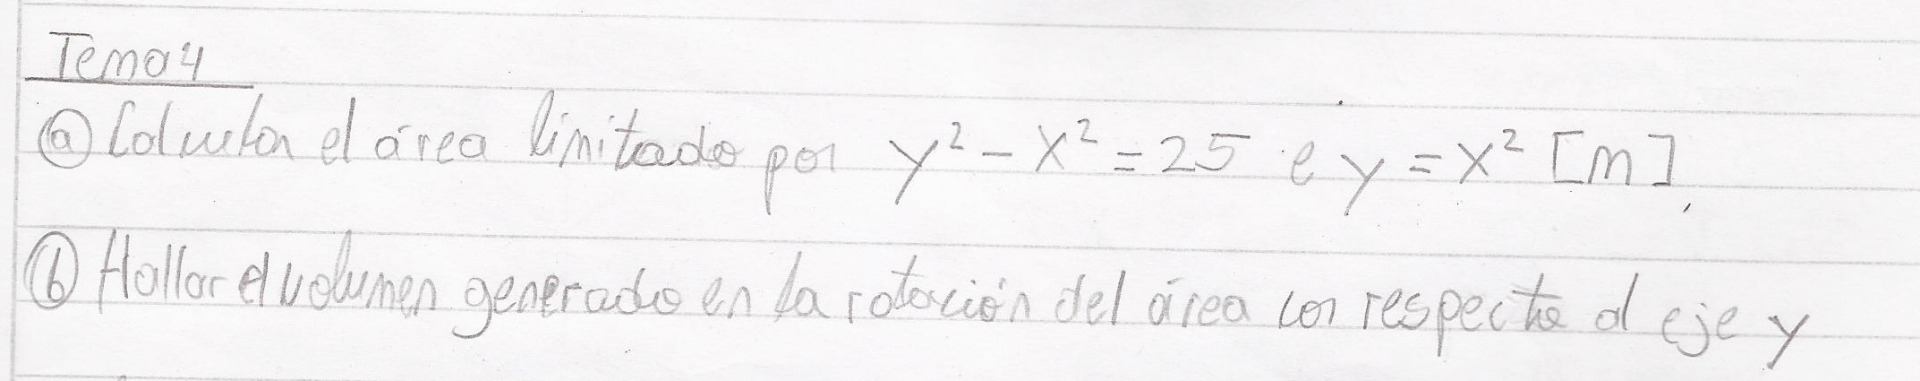 Tema 4
ⓐ Calcular el área limitado por y² - x² = 25 e y = x² [m]
ⓑ Hallar el volumen generado en la rotación del área con respecto al eje y